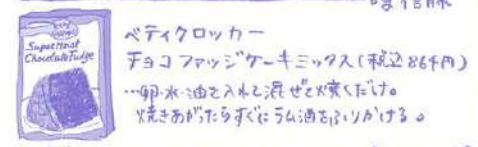 Super Moist
Chocolate Fudge
ベティクロッカー
チョコファッジケーキミックス(税込864円)
…卵・水・油を入れて混ぜて焼くだけ。
焼きあがったらすぐにラム酒をふりかける。